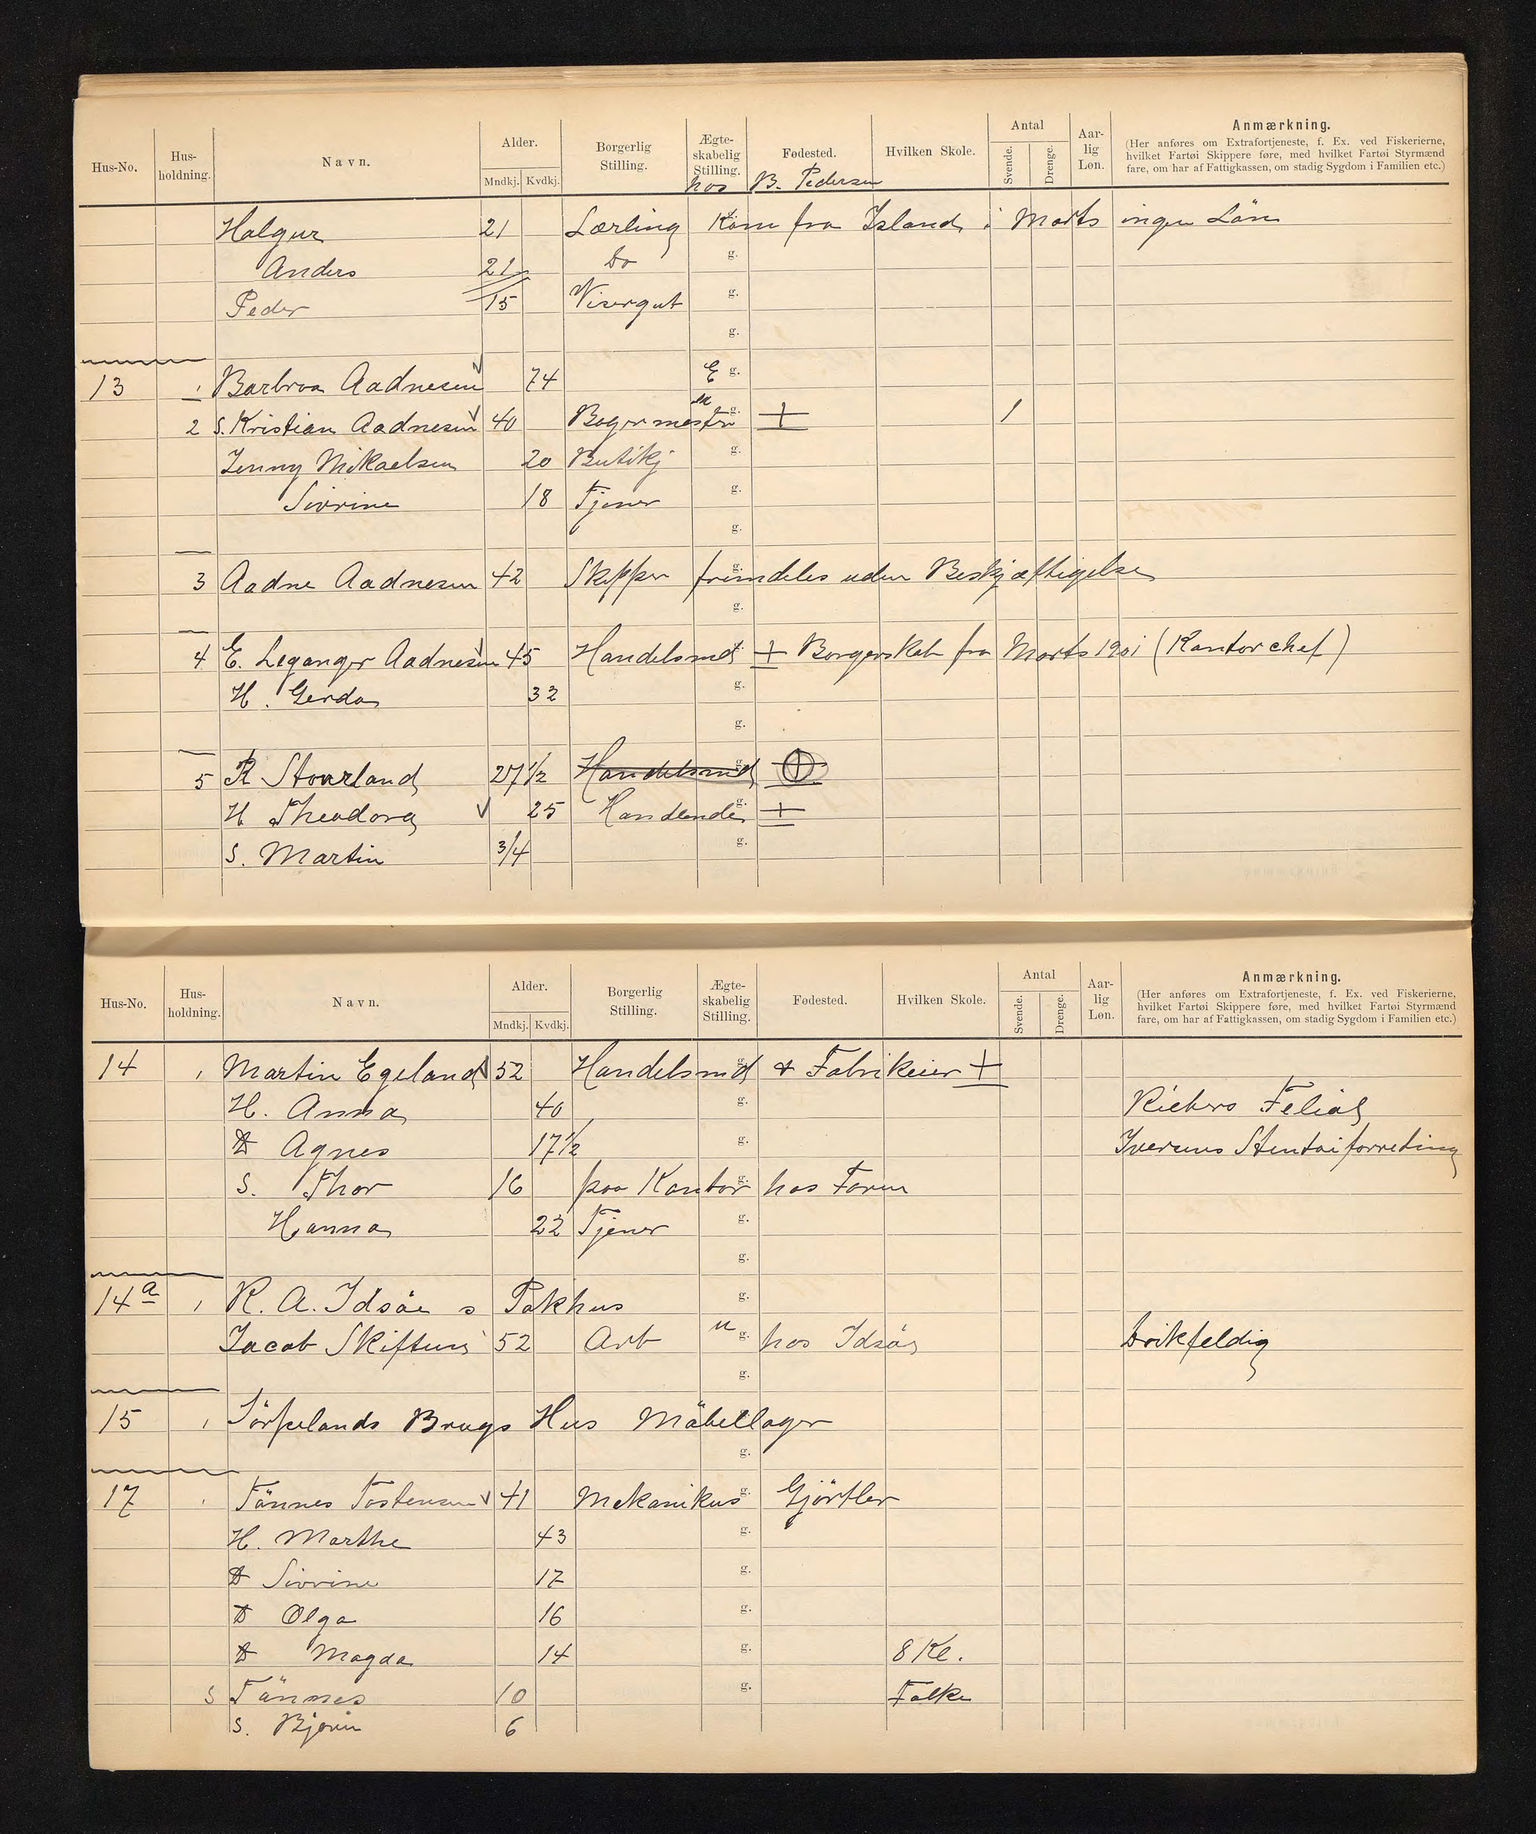 Hus-No. Hus-holdning. Navn. Alder. Mndkj. Kvdkj. Borgerlig Stilling. Ægte-skabelig Stilling. Fødested. Hvilken Skole. Antal Svende. Drenge. Aar-lig Løn. Anmærkning.
(Her anføres om Extrafortjeneste, f. Ex. ved Fiskerierne, hvilket Fartøi Skippere føre, med hvilket Fartøi Styrmænd fare, om har af Fattigkassen, om stadig Sygdom i Familien etc.)
hos B. Pedersen
Halgur 21 Lærling Kom fra Island i Marts ingen Løn
Anders 21 Do g.
Peder 15 Visergut g.
g.
13 1 Barbroa Aadnesen 74 E g.
2 S. Kristian Aadnesen 40 Bøgermester g. + 1
Jenny Mikaelsen 20 Butikj g.
Sivrine 18 Tjener g.
g.
3 Aadne Aadnesen 42 Skipper fremdeles uden Beskjæftigelse
g.
4 E. Leganger Aadnesen 45 Handelsmd + Borgerskab fra Marts 1901 (Kontorchef)
H. Gerda 32 g.
g.
5 R Stovrland 27 1/2 Handelsmd g. +
H Theodora 25 Handlende g. +
S. Martin 3/4 g.
Hus-No. Hus-holdning. Navn. Alder. Mndkj. Kvdkj. Borgerlig Stilling. Ægte-skabelig Stilling. Fødested. Hvilken Skole. Antal Svende. Drenge. Aar-lig Løn. Anmærkning.
(Her anføres om Extrafortjeneste, f. Ex. ved Fiskerierne, hvilket Fartøi Skippere føre, med hvilket Fartøi Styrmænd fare, om har af Fattigkassen, om stadig Sygdom i Familien etc.)
14 1 Martin Egeland 52 Handelsmd & Fabrikeier +
H. Anna 40 g. Riebers Felial
D Agnes 17 1/2 g. Iversens Stentøiforretning
S. Thor 16 paa Kontor g. hos Faren
Hanna 22 Tjener g.
g.
14a 1 R. A. Idsøe s Pakhus g.
Jacob Skiftun 52 Arb u g. hos Idsøe Drikfeldig
g.
15 1 Jørpelands Brugs Hus Møbellager
g.
17 1 Tønnes Tostensen 41 Mekanikus g. Gjørtler
H. Marthe 43 g.
D Sivrine 17 g.
D Olga 16 g.
D Magda 14 g. 8 Kl.
S Tønnes 10 g. Folke
S. Bjørn 6